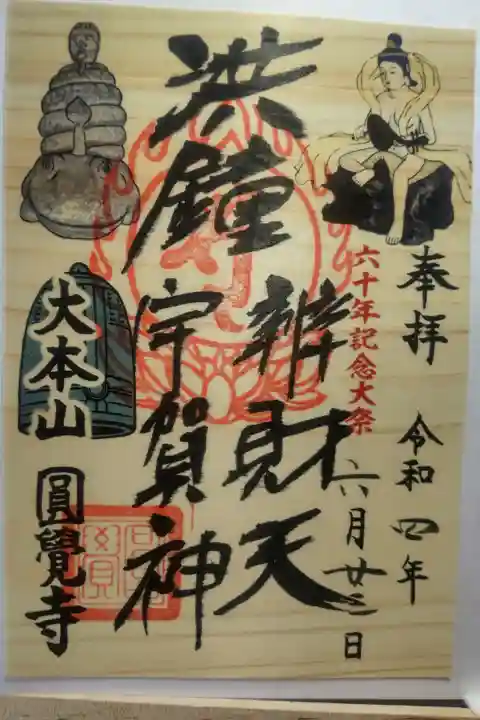 奉拝
令和四年
六月廿三日
六十年記念大祭
洪鐘
辨財天
宇賀神
大本山
圓覺寺